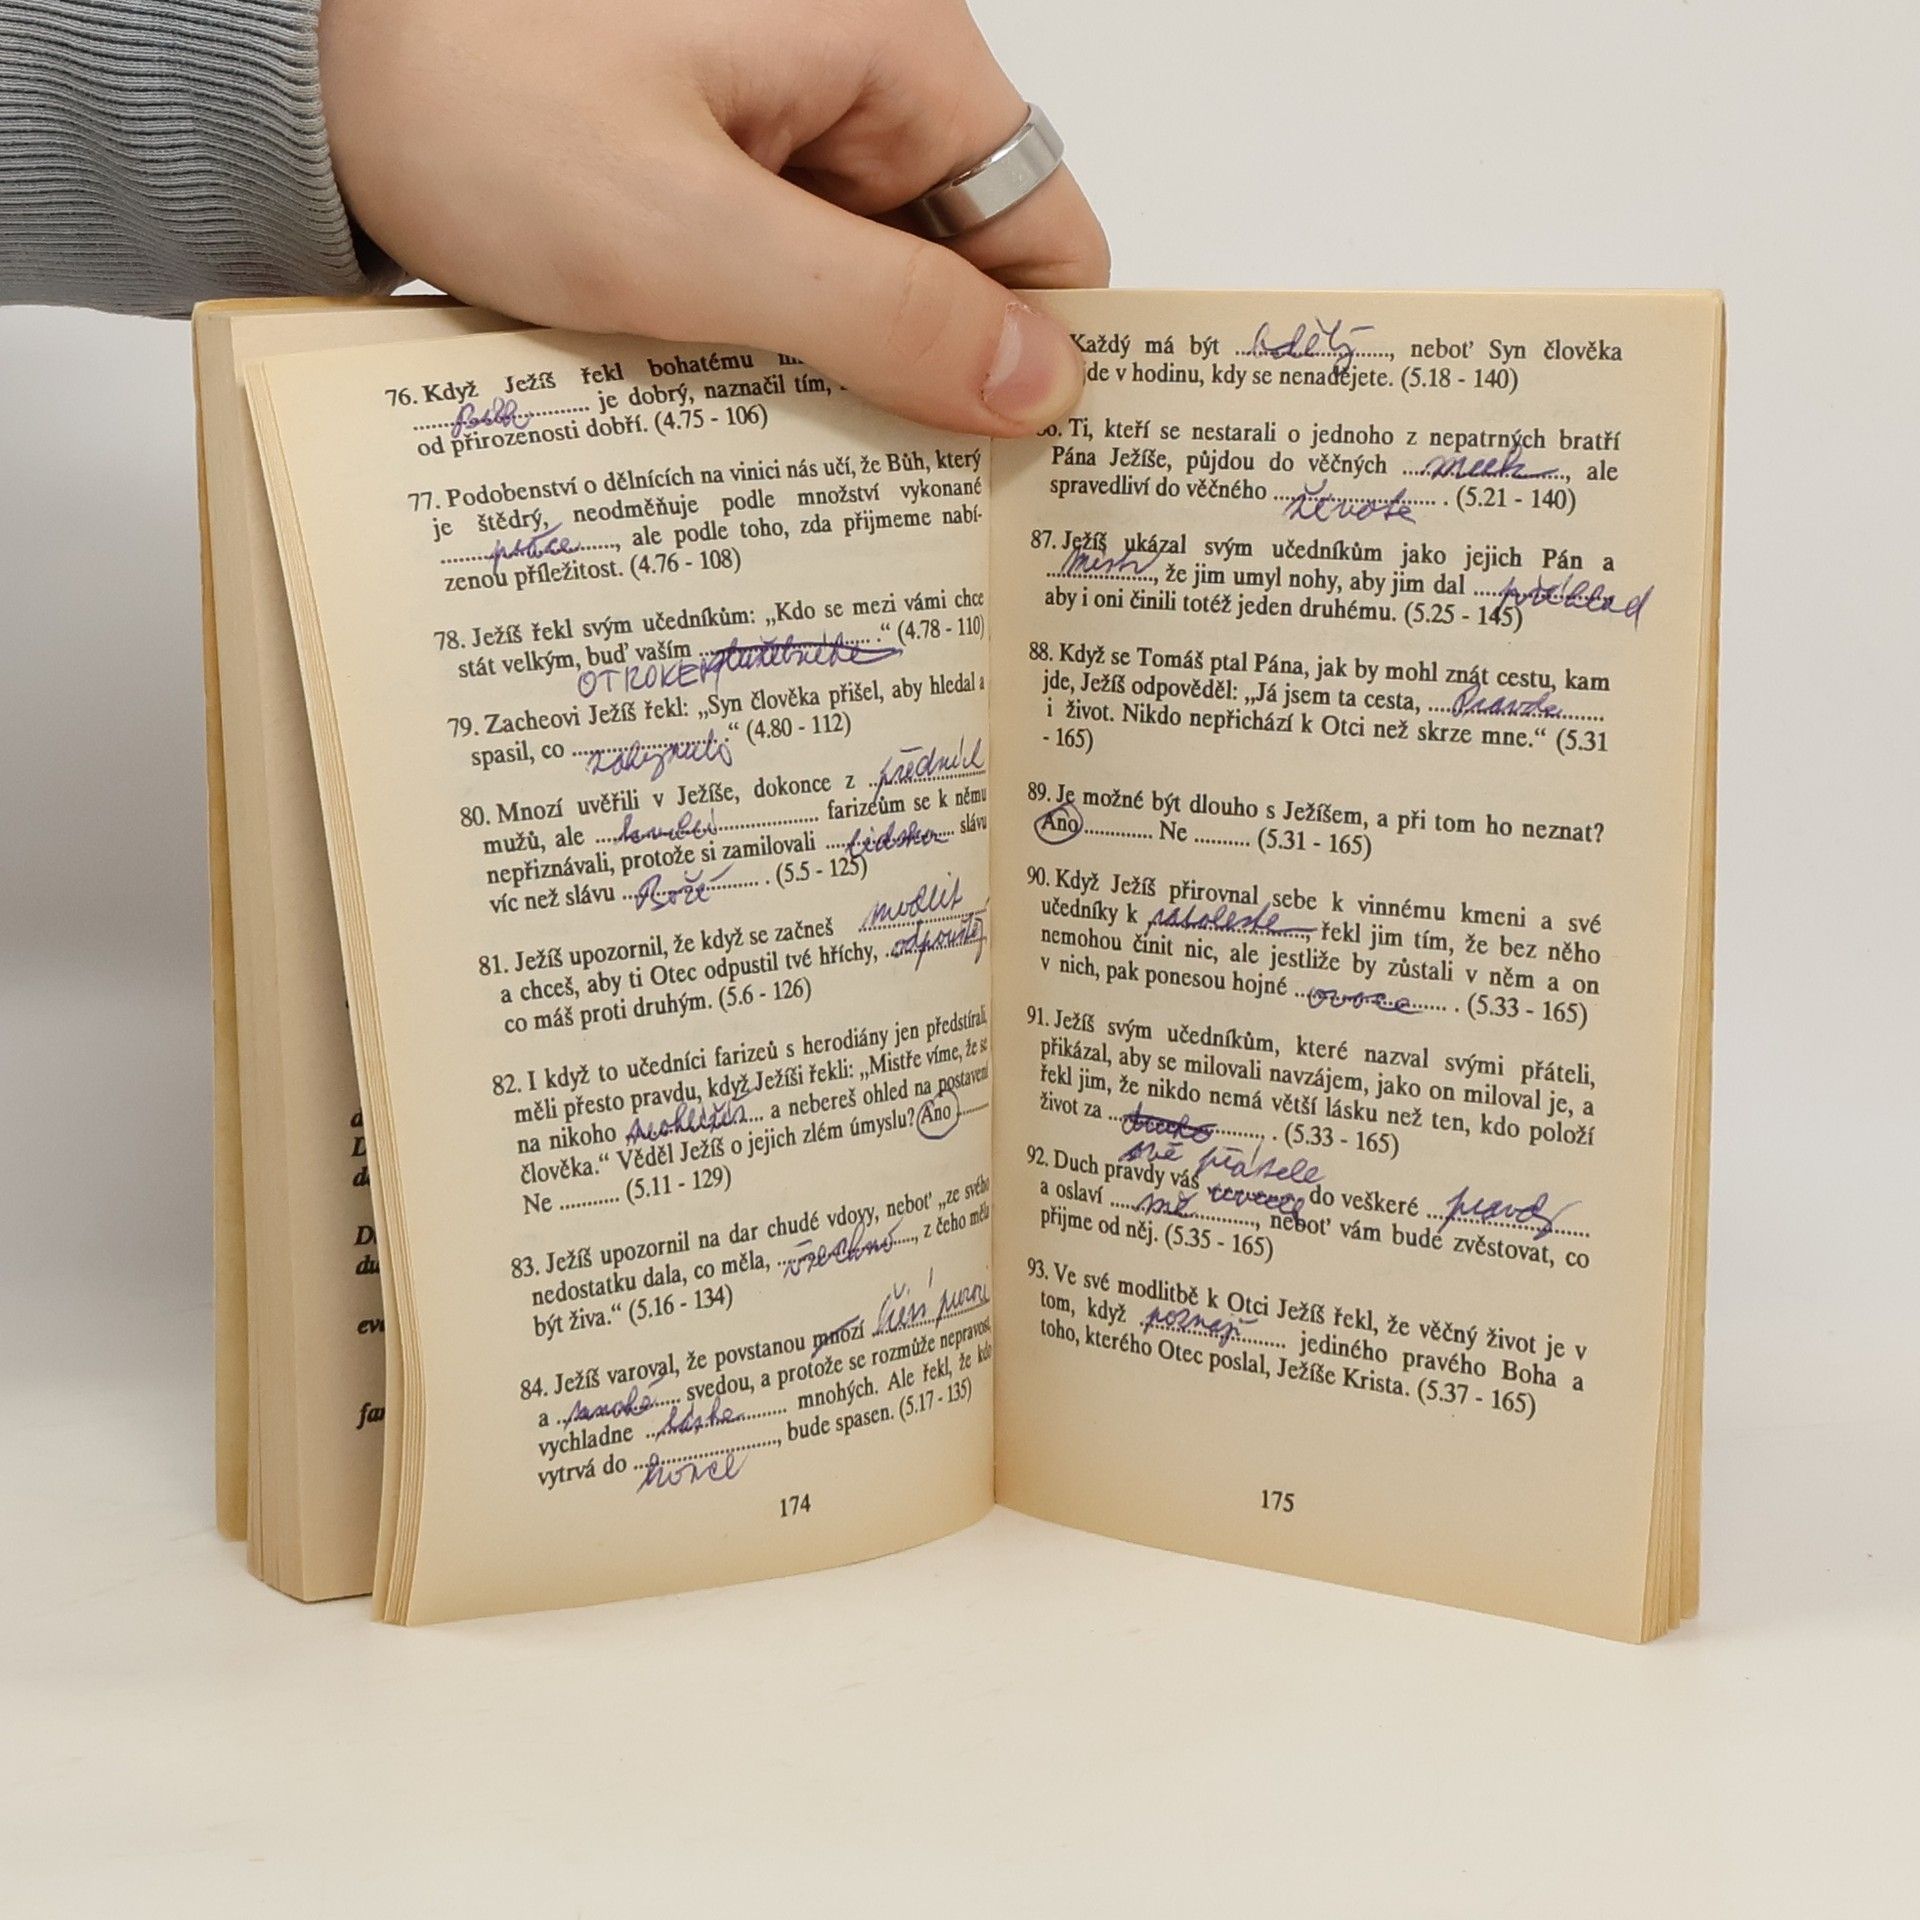 76. Když Ježíš řekl bohatému
je dobrý, naznačil tím,
od přirozenosti dobří. (4.75 - 106)
77. Podobenství o dělnících na vinici nás učí, že Bůh, který
je štědrý, neodměňuje podle množství vykonané
práce, ale podle toho, zda přijmeme nabí-
zenou příležitost. (4.76 - 108)
78. Ježíš řekl svým učedníkům: „Kdo se mezi vámi chce
stát velkým, buď vaším služebníkem.“ (4.78 - 110)
OTROKEM
79. Zacheovi Ježíš řekl: „Syn člověka přišel, aby hledal a
spasil, co ..........“ (4.80 - 112)
zahynulo
80. Mnozí uvěřili v Ježíše, dokonce z předních
mužů, ale kvůli farizeům se k němu
nepřiznávali, protože si zamilovali lidskou slávu
víc než slávu Boží. (5.5 - 125)
81. Ježíš upozornil, že když se začneš modlit
a chceš, aby ti Otec odpustil tvé hříchy, odpouštěj
co máš proti druhým. (5.6 - 126)
82. I když to učedníci farizeů s herodiány jen předstírali,
měli přesto pravdu, když Ježíši řekli: „Mistře víme, že se
na nikoho neohlížíš a nebereš ohled na postavení
člověka.“ Věděl Ježíš o jejich zlém úmyslu? Ano ..........
Ne .......... (5.11 - 129)
83. Ježíš upozornil na dar chudé vdovy, neboť „ze svého
nedostatku dala, co měla, všechno, z čeho měla
být živa.“ (5.16 - 134)
84. Ježíš varoval, že povstanou mnozí
a mnohé svedou, a protože se rozmůže nepravost,
vychladne láska mnohých. Ale řekl, že kdo
vytrvá do .........., bude spasen. (5.17 - 135)
konce
174
Každý má být bdělý, neboť Syn člověka
jde v hodinu, kdy se nenadějete. (5.18 - 140)
Ti, kteří se nestarali o jednoho z nepatrných bratří
Pána Ježíše, půjdou do věčných muk, ale
spravedliví do věčného .......... . (5.21 - 140)
života
87. Ježíš ukázal svým učedníkům jako jejich Pán a
Mistr, že jim umyl nohy, aby jim dal příklad
aby i oni činili totéž jeden druhému. (5.25 - 145)
88. Když se Tomáš ptal Pána, jak by mohl znát cestu, kam
jde, Ježíš odpověděl: „Já jsem ta cesta, Pravda
i život. Nikdo nepřichází k Otci než skrze mne.“ (5.31
- 165)
89. Je možné být dlouho s Ježíšem, a při tom ho neznat?
Ano .......... Ne .......... (5.31 - 165)
90. Když Ježíš přirovnal sebe k vinnému kmeni a své
učedníky k ratolestem, řekl jim tím, že bez něho
nemohou činit nic, ale jestliže by zůstali v něm a on
v nich, pak ponesou hojné ovoce. (5.33 - 165)
91. Ježíš svým učedníkům, které nazval svými přáteli,
přikázal, aby se milovali navzájem, jako on miloval je, a
řekl jim, že nikdo nemá větší lásku než ten, kdo položí
život za .......... . (5.33 - 165)
své přátele
92. Duch pravdy vás uvede do veškeré pravdy
a oslaví mě, neboť vám bude zvěstovat, co
přijme od něj. (5.35 - 165)
93. Ve své modlitbě k Otci Ježíš řekl, že věčný život je v
tom, když poznají jediného pravého Boha a
toho, kterého Otec poslal, Ježíše Krista. (5.37 - 165)
175